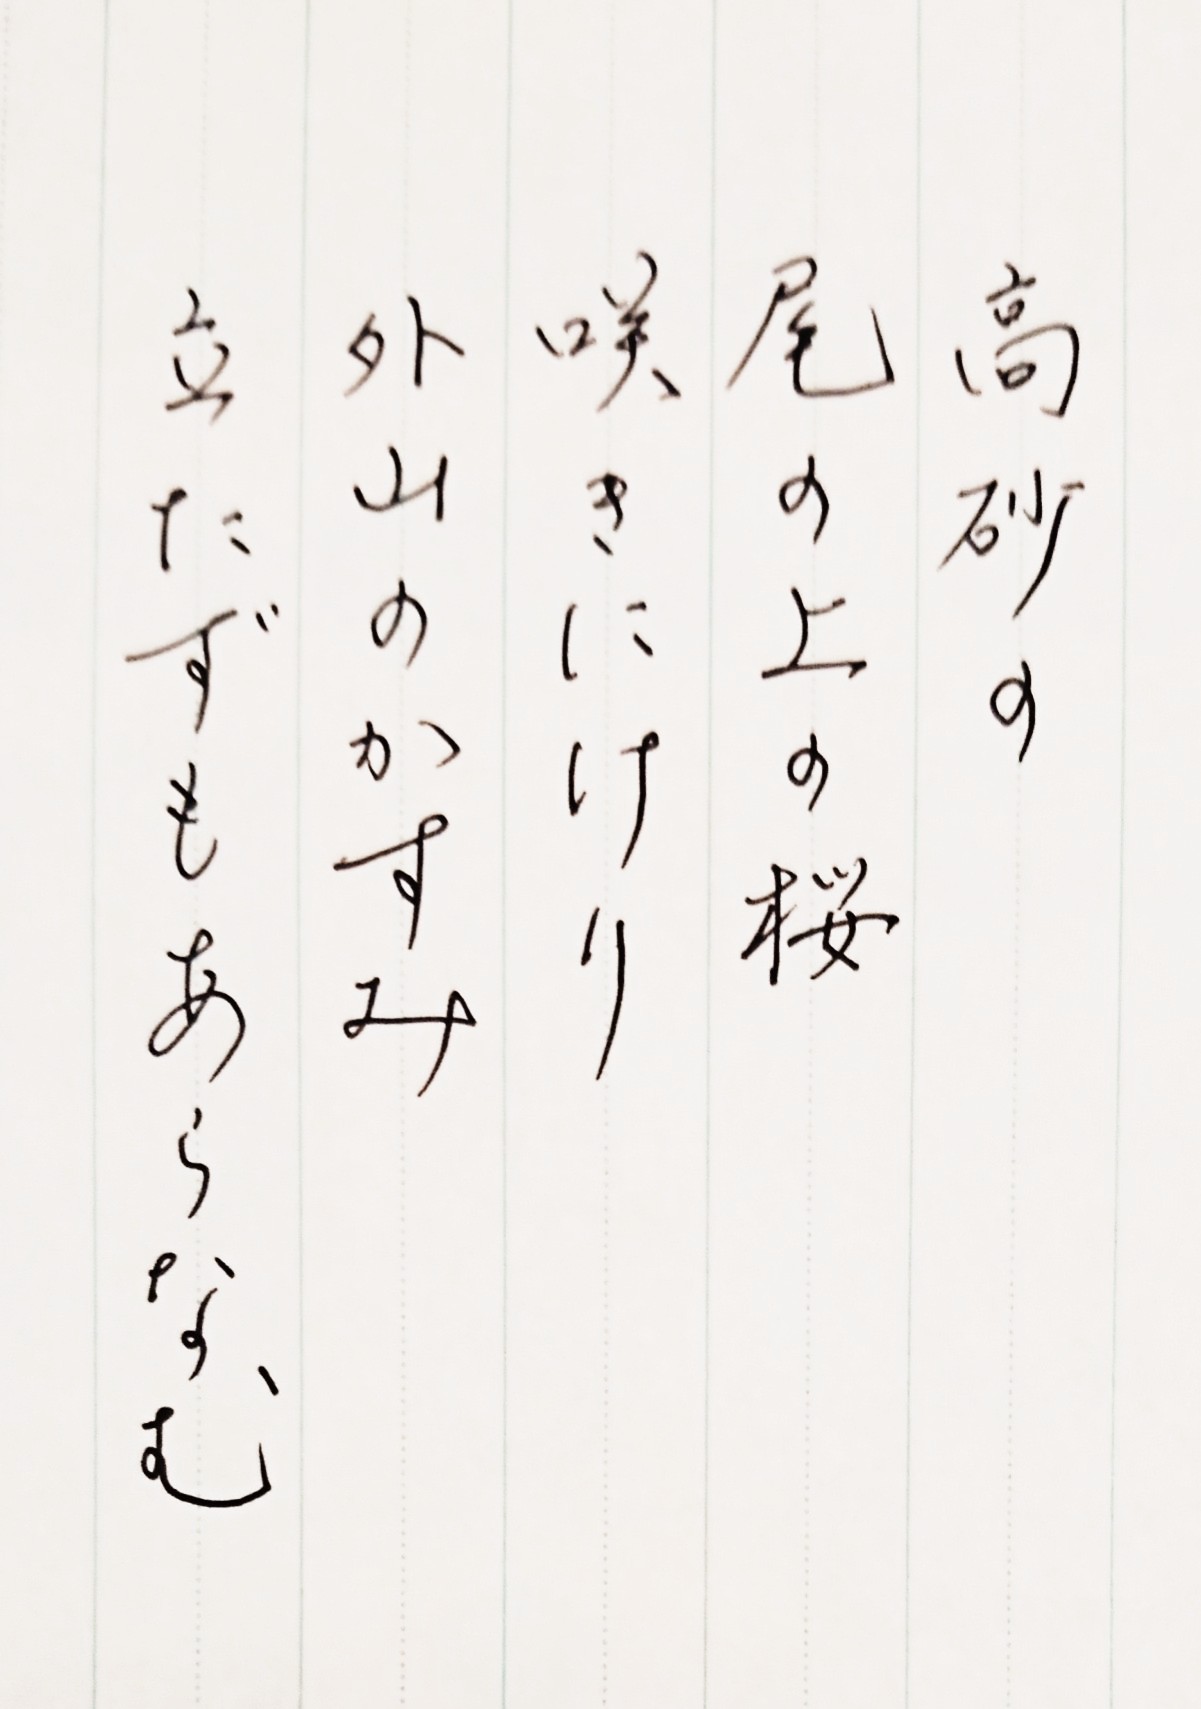 高砂の
尾の上の桜
咲きにけり
外山のかすみ
立たずもあらなむ